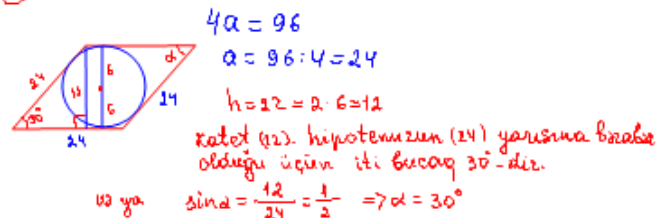 4a = 96
a = 96 : 4 = 24
h = 2r = 2 · 6 = 12
katet (12). hipotenuzun (24) yarısına bərabər
olduğu üçün iti bucaq 30°-dir.
və ya sinα = 12/24 = 1/2 => α = 30°
24
12
6
6
α
30°
24
24